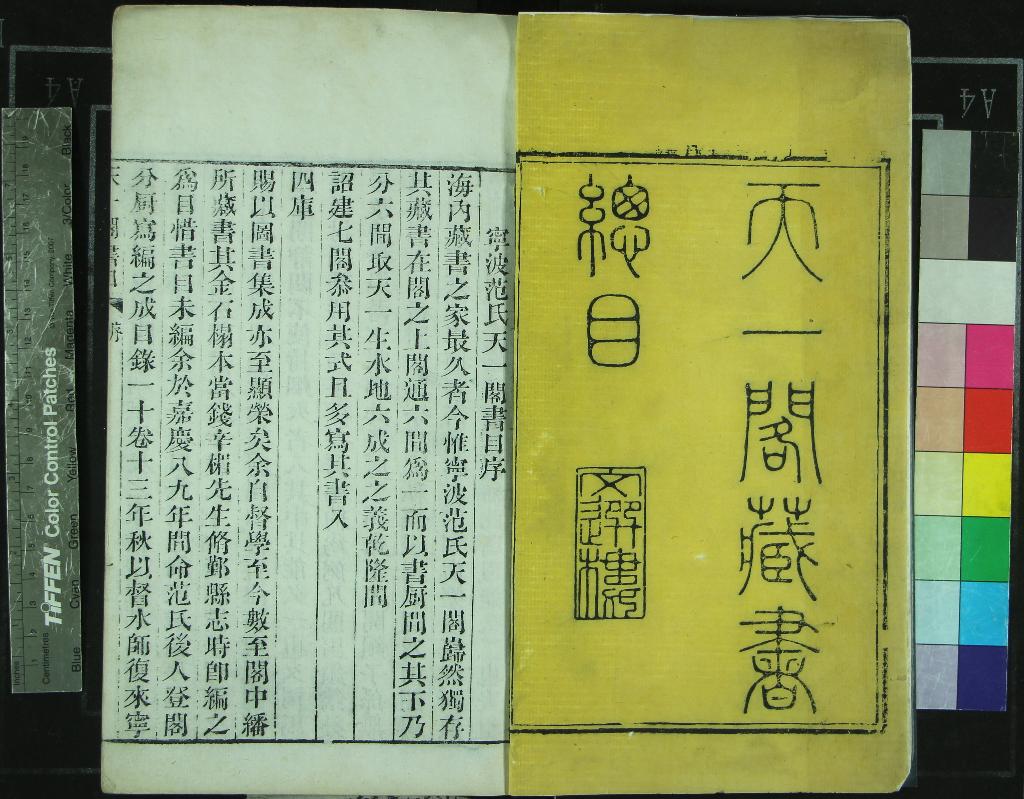 天一閣藏書
總目
文選樓
寧波范氏天一閣書目序
海內藏書之家最久者今惟寧波范氏天一閣巋然獨存
其藏書在閣之上閣通六間爲一而以書厨間之其下乃
分六間取天一生水地六成之之義乾隆間
詔建七閣叅用其式且多寫其書入
四庫
賜以圖書集成亦至顯榮矣余自督學至今數至閣中繙
所藏書其金石榻本當錢辛楣先生脩鄞縣志時卽編之
爲目惜書目未編余於嘉慶八九年間命范氏後人登閣
分厨寫編之成目錄一十卷十三年秋以督水師復來寧
天一閣書目 序
TIFFEN Color Control Patches
© The Tiffen Company, 2007
Inches
Centimetres
Blue
Cyan
Green
Yellow
Red
Magenta
White
3/Color
Black
A4
A4